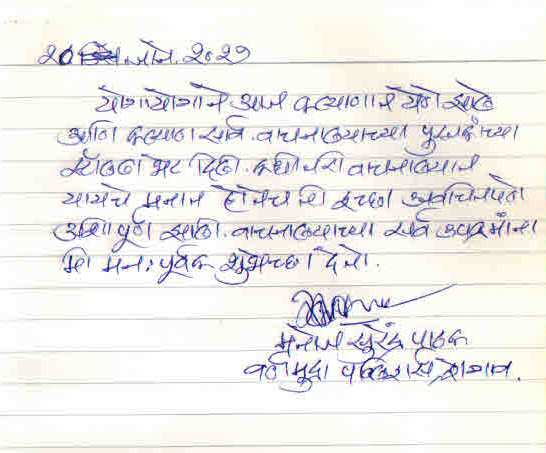 २० जाने. २०२१
योगायोगाने आज कल्याणात येणे झाले
आणि कल्याण सार्व. वाचनालयाच्या पुस्तकांच्या
स्टॉलला भेट दिली. कधीतरी वाचनालयात
यायचे मनात होतेच ती इच्छा अवचितपणे
अशी पूर्ण झाली. वाचनालयाच्या सर्व उपक्रमांना
मी मनःपूर्वक शुभेच्छा देतो.
सुरेंद्र पाठक